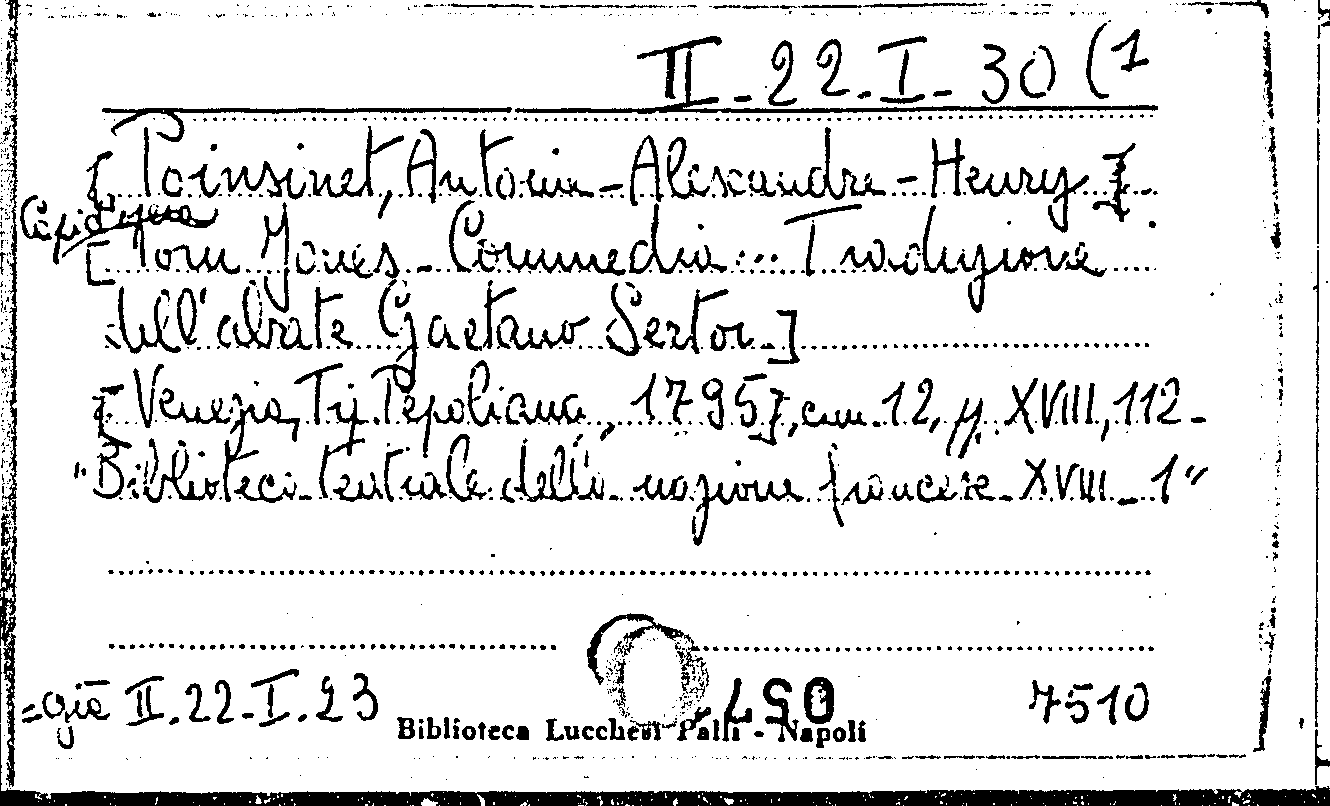 II-22.I-30 (1
[Poinsinet, Antoine-Alexandre-Henry].
Cop. d'opera
[Tom Jones - Commedia ... Traduzione
dell'abate Gaetano Sertor.]
[Venezia, Tip. Pepoliana, 1795], cm. 12, pp. XVIII, 112-
"Biblioteca teatrale della nazione francese - XVIII - 1"
=già II.22-I.23
057
7510
Biblioteca Lucchesi Palli - Napoli